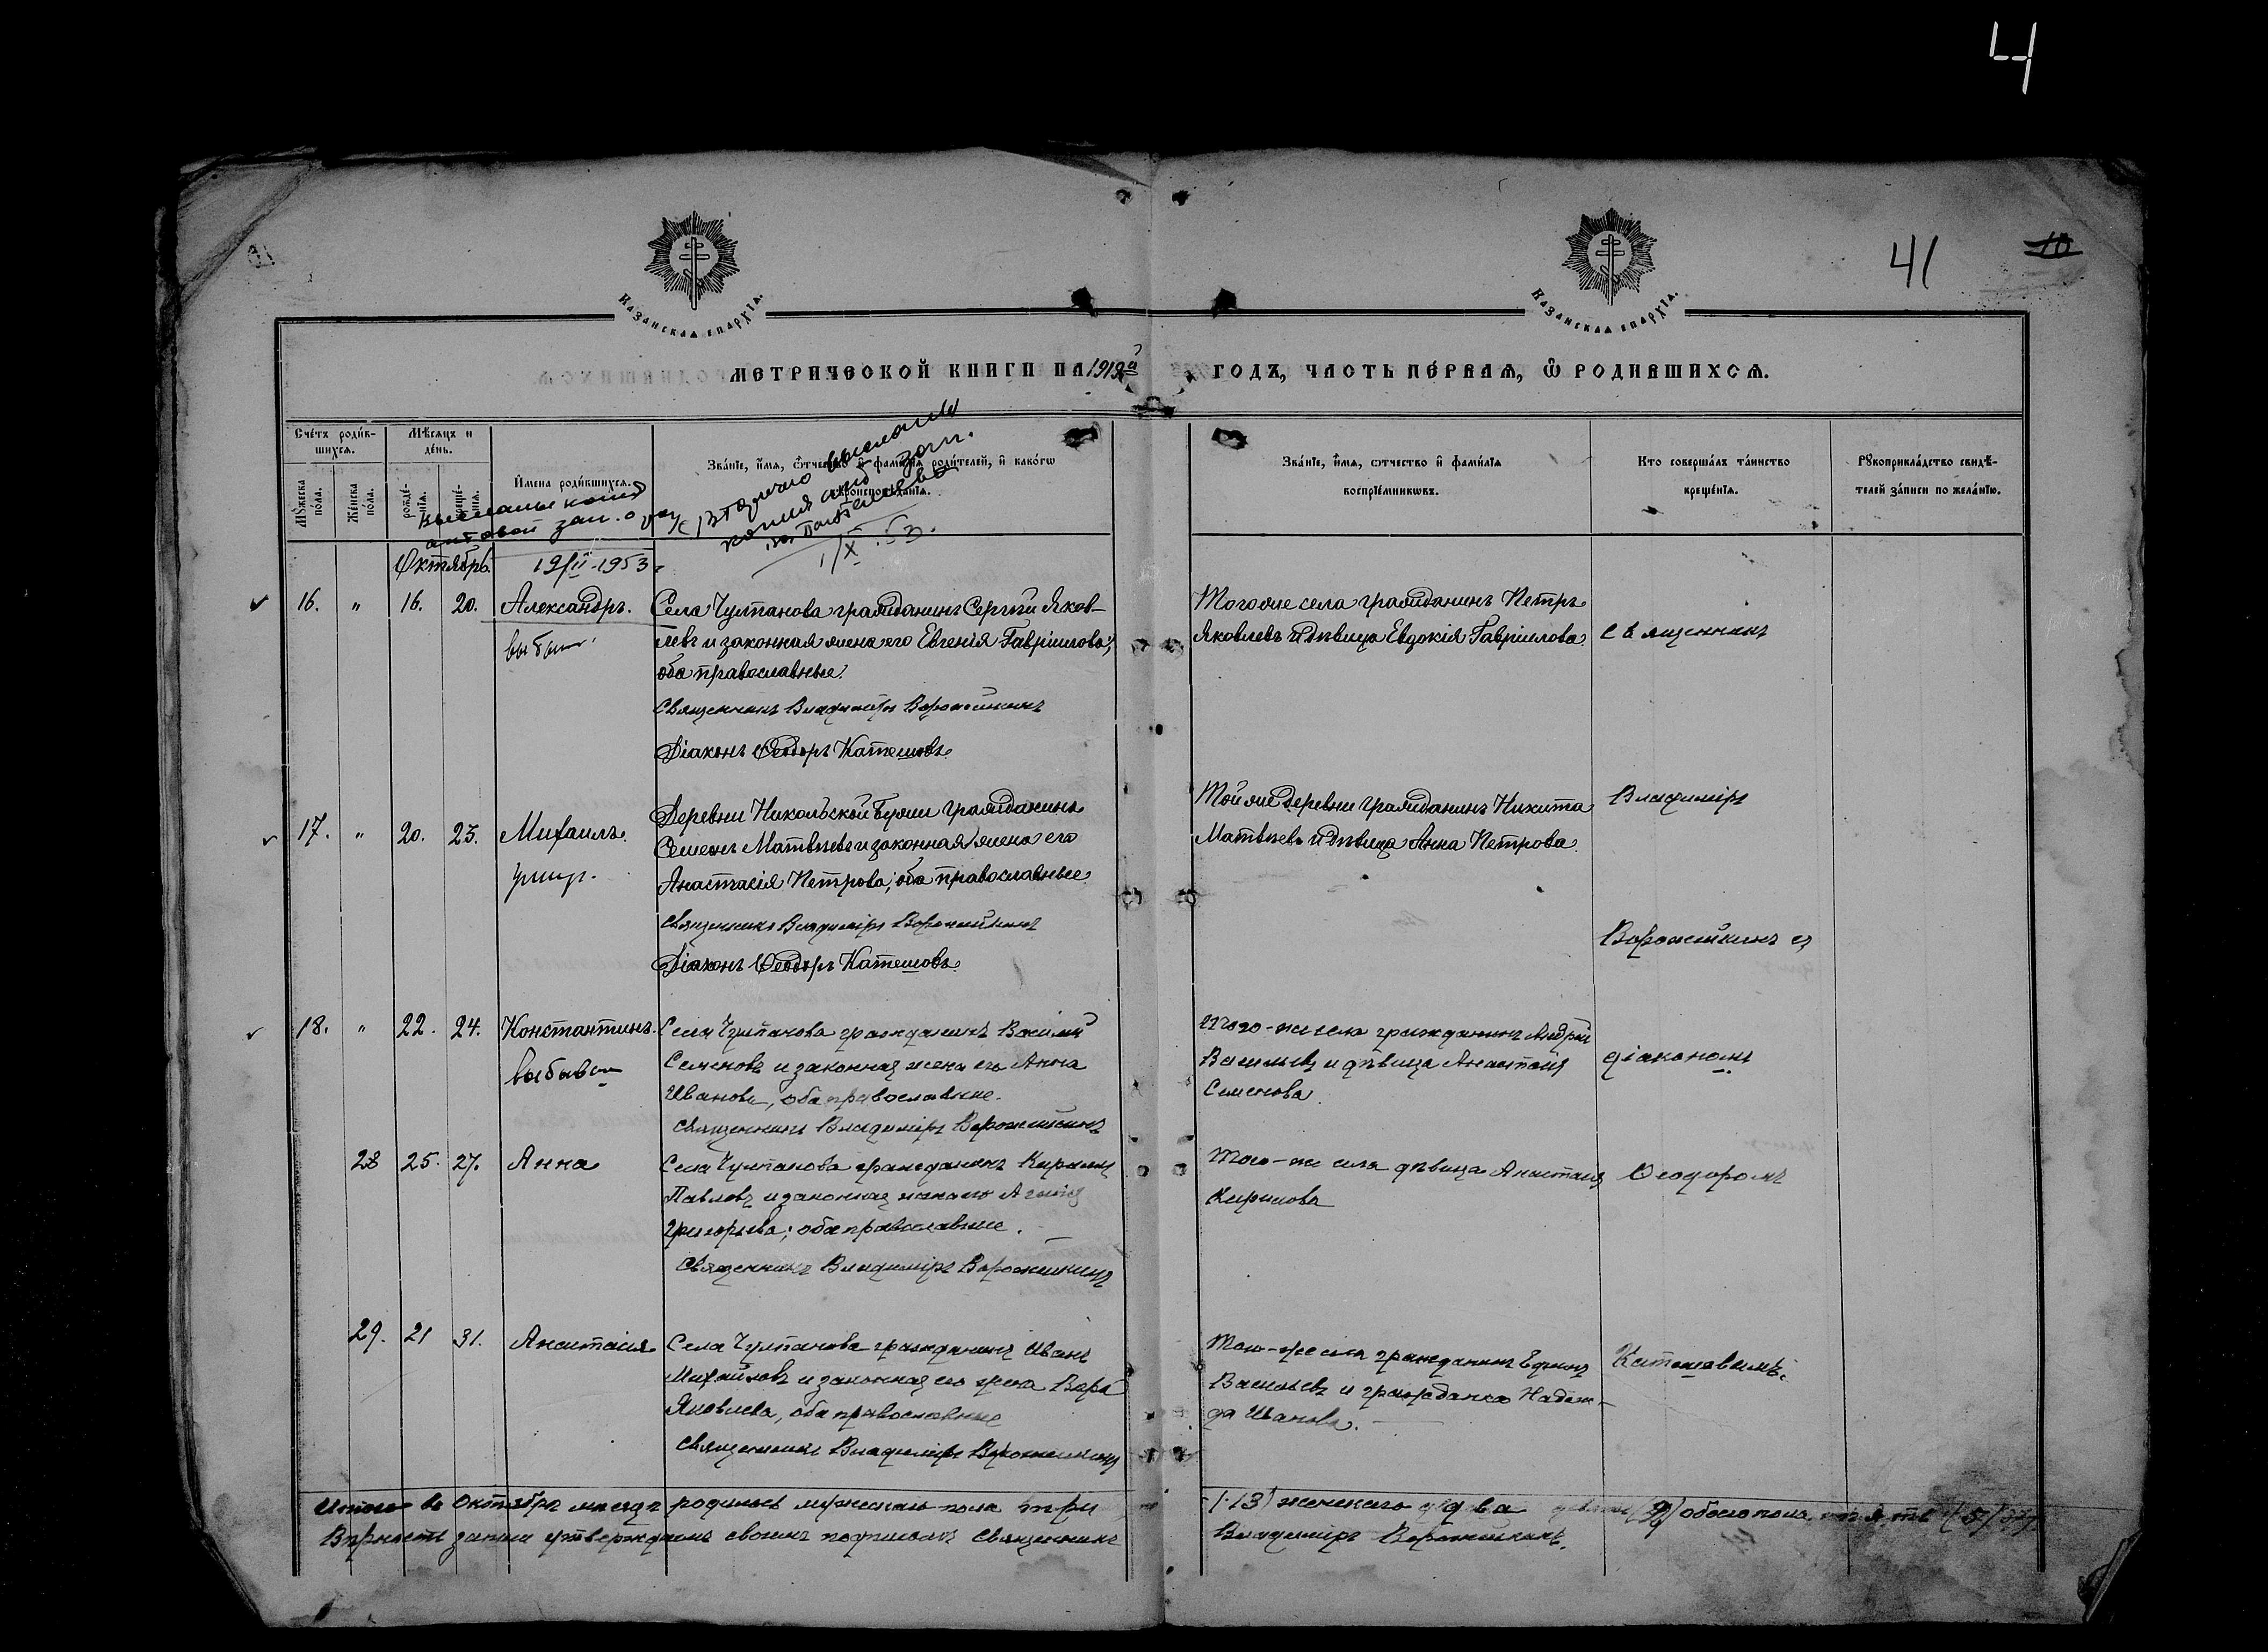 4
41
10
Казанская епархїа.
Казанская епархїа.
МЕТРИЧЕСКОЙ КНИГИ НА 1919й ГОДЪ, ЧАСТЬ ПЕРВАЯ, Ѿ РОДИВШИХСЯ.
Счетъ родив-
шихся.
Мужеска пола.
Женска пола.
Мѣсяцъ и
день.
рожде-
нїя.
креще-
нїя.
Имена родившихся.
Званїе, имя, ѿтчество и фамилїя родителей, и какогѡ
вѣроисповѣданїя.
Званїе, имя, ѿтчество и фамилїя
воспрїемникѡвъ.
Кто совершалъ таинство
крещенїя.
Рꙋкоприкладство свидѣ-
телей записи по желанїю.
выслана копия
актовой зап. о
19/II-1953
Вторично выслана
копия зап.
1/X.53.
Октябрь.
16. " 16. 20. Александръ.
выбыл
Села Чулпанова гражданинъ Сергѣй Яков-
левъ и законная жена его Евгенія Гавріилова;
оба православные.
Священникъ Владиміръ Ворожейкинъ
Діаконъ Ѳеодоръ Катешовъ.
Того же села гражданинъ Петръ
Яковлевъ и дѣвица Евдокія Гавріилова.
Священникъ
17. " 20. 23. Михаилъ.
умер.
Деревни Никольской гражданинъ
Семенъ Матвѣевъ и законная жена его
Анастасія Петрова; оба православные
Священникъ Владиміръ Ворожейкинъ
Діаконъ Ѳеодоръ Катешовъ.
Той же деревни гражданинъ Никита
Матвѣевъ и дѣвица Анна Петрова.
Владиміръ
Ворожейкинъ съ
18. " 22. 24. Константинъ.
выбыл
Села Чулпанова гражданинъ Василій
Семеновъ и законная жена его Анна
Иванова, оба православные.
Священникъ Владиміръ Ворожейкинъ
Того-же села гражданинъ Андрей
Васильевъ и дѣвица Анастасія
Семенова.
діакономъ
28 25. 27. Анна
Села Чулпанова гражданинъ Кириллъ
Павловъ и законная жена его
Григорьева; оба православные.
Священникъ Владиміръ Ворожейкинъ
Того-же села дѣвица Анастасія
Кирилова
Ѳеодоромъ
29. 21 31. Анастасія
Села Чулпанова гражданинъ Иванъ
Михайловъ и законная его жена Вѣра
Яковлева, оба православные
Священникъ Владиміръ Ворожейкинъ
Того-же села гражданинъ Ефимъ
Васильевъ и гражданка Надеж-
да Иванова.
Катешовымъ.
Итого въ Октябрѣ месяцѣ родилось мужескаго пола три (3) женскаго два обоего пола пять (5)
Вѣрность записи утверждаемъ своимъ подписомъ Священникъ Владиміръ Ворожейкинъ.